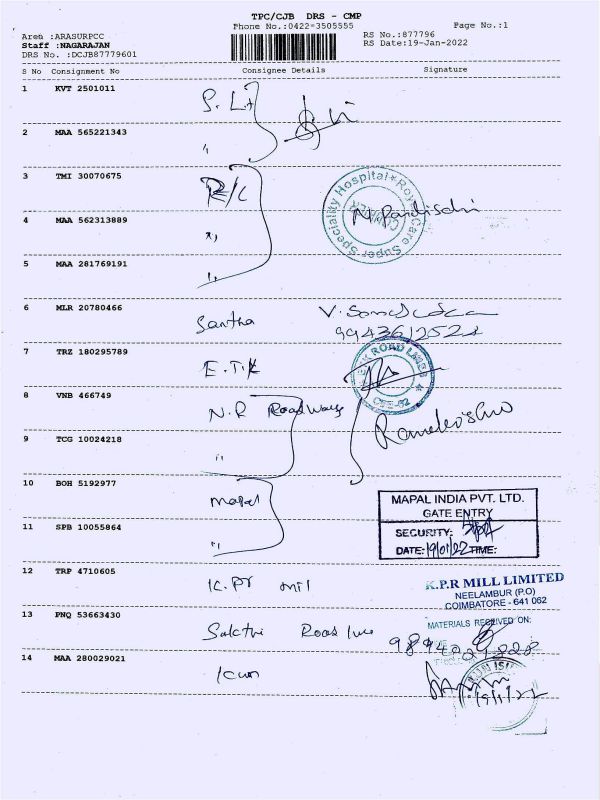 TPC/CJB DRS - CMP
Phone No.:0422-3505555
Page No.:1
Area :ARASURPCC
RS No.:877796
Staff :NAGARAJAN
RS Date:19-Jan-2022
DRS No. :DCJB87779601
S No Consignment No Consignee Details Signature
1 KVT 2501011
2 MAA 565221343 "
3 TMI 30070675 R/C
Royal Care Super Speciality Hospital
4 MAA 562313889 "
5 MAA 281769191 "
6 MLR 20780466 Santha
9943612521
7 TRZ 180295789
ROAD LINES
8 VNB 466749 N.R Roadways
9 TCG 10024218 "
10 BOH 5192977 Mapal
MAPAL INDIA PVT. LTD.
GATE ENTRY
11 SPB 10055864 "
SECURITY:
DATE: 19/01/22 TIME:
12 TRP 4710605 K.PR mil
K.P.R MILL LIMITED
NEELAMBUR (P.O)
COIMBATORE - 641 062
13 PNQ 53663430 Sakthi Road line
MATERIALS RECEIVED ON:
14 MAA 280029021
19/1/22